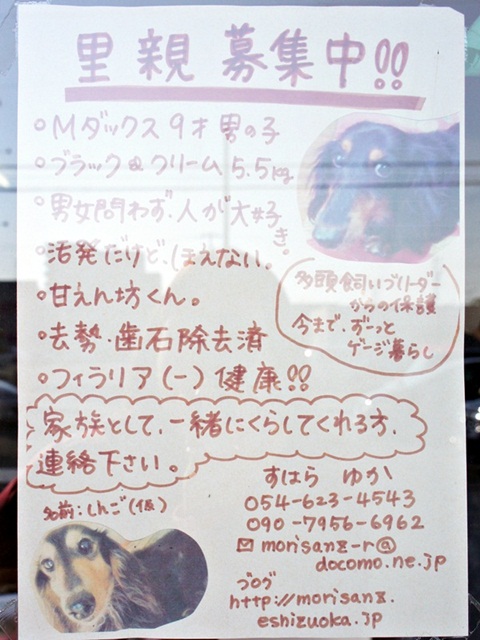 里親募集中!!
○Mダックス9才男の子
○ブラック&クリーム5.5kg
○男女問わず、人が大好き。
○活発だけど、ほえない。
○甘えん坊くん。
○去勢・歯石除去済
○フィラリア(ー)健康!!
多頭飼いブリーダー
からの保護
今まで、ずーっと
ゲージ暮らし
家族として、一緒にくらしてくれる方、
連絡下さい。
名前:しんご(仮)
すはら ゆか
054-623-4543
090-7956-6962
✉morisan8-r@
docomo.ne.jp
ブログ
http://morisan8.
eshizuoka.jp